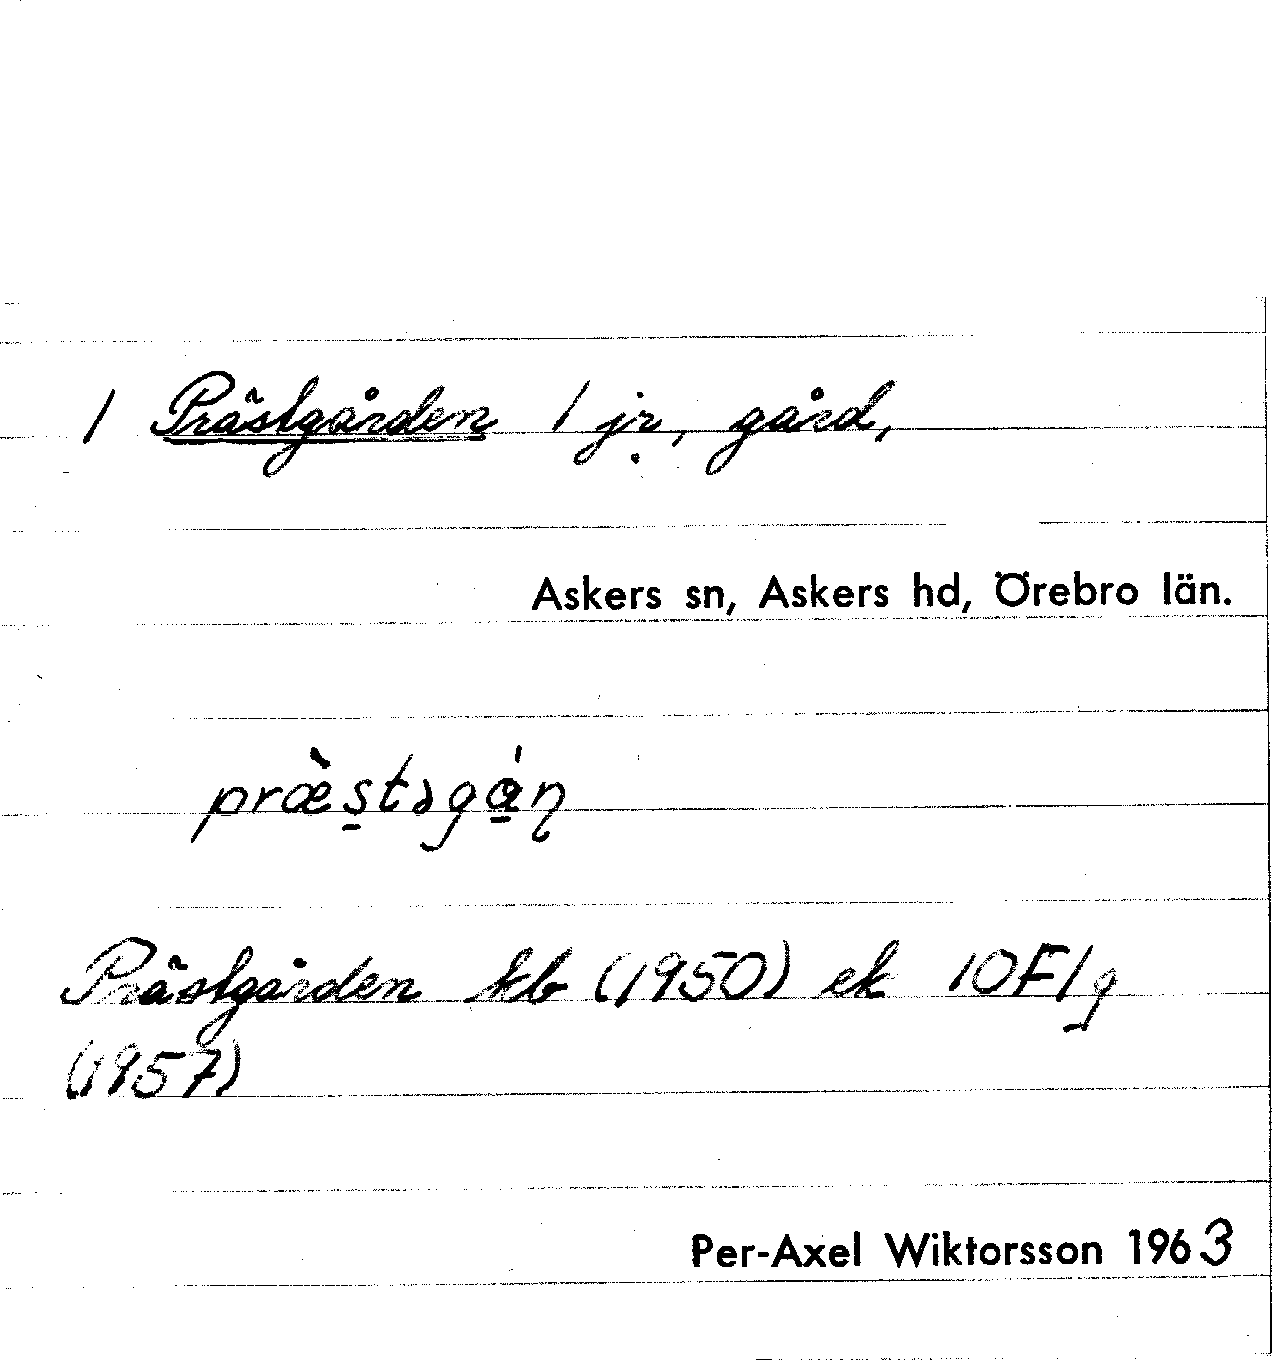 1 Prästgården 1 jr, gård,
Askers sn, Askers hd, Örebro län.
præ̀s̱təgá̱ɳ
Prästgården kb (1950) ek 10F1g
(1957)
Per-Axel Wiktorsson 1963